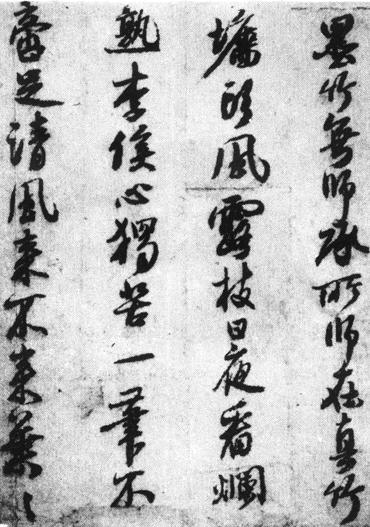 墨竹無師承所師在真竹
墻頭風露枝日夜看爛
熟李侯心獨苦一筆不
足清風來不來葉〻